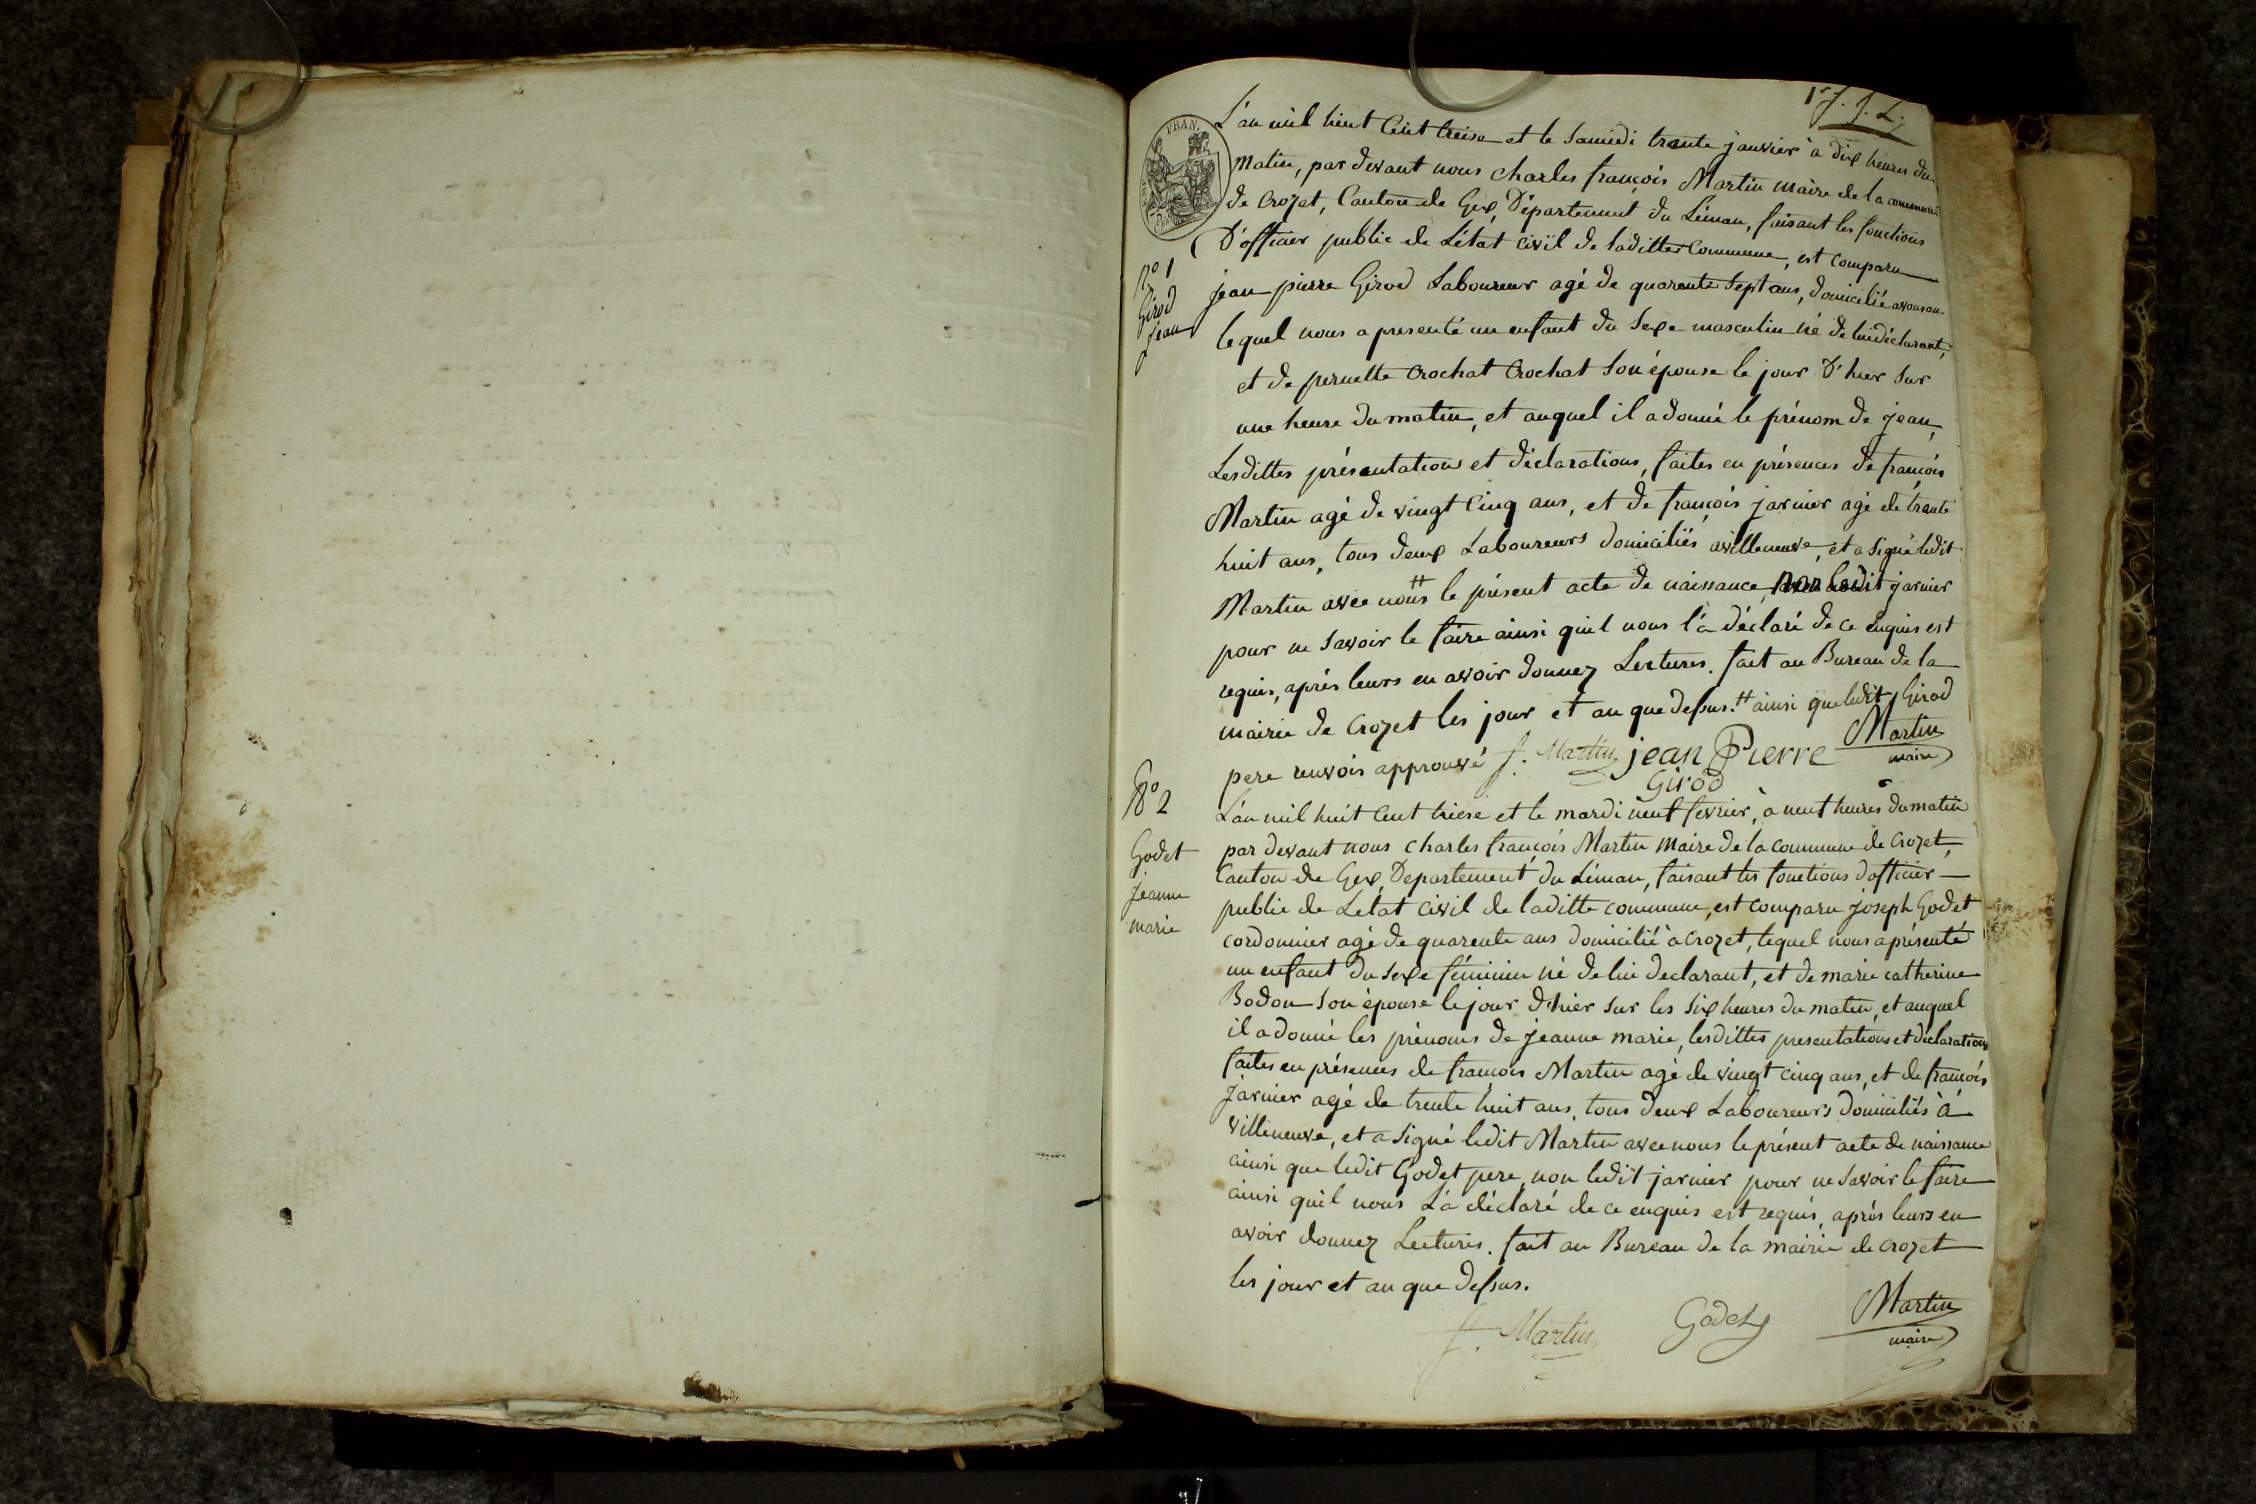 1r J. J. L.
FRAN.
L'an mil huit Cent treise et le Samedi trente janvier à dix heures du
Matin, par devant nous charles françois Martin maire de la commune
de Crozet, Canton de Gex, Département du Léman, faisant les fonctions
D'officier public de L'état civil de laditte Commune, est comparu
N° 1
Girod
jean
jean pierre Girod Laboureur agé de quarante Sept ans, domicilié
lequel nous a presenté un enfant du Sexe masculin né de lui déclarant,
et de pernette Crochat Crochat Son épouse le jour D'hier Sur
une heure du matin, et auquel il a donné le prénom de jean,
Lesdittes présentation et déclarations, faites en présences de françois
Martin agé de vingt Cinq ans, et de françois jarnier agé de trente
huit ans, tous deux Laboureurs domiciliés avilleneuve, et a Signé ledit
Martin avec nous # le présent acte de naissance, non ledit jarnier
pour ne Savoir le faire ainsi quil nous l'a déclaré de ce enquis est
requis, après leurs en avoir donnez Lectures. fait au Bureau de la
mairie de Crozet les jour et an que dessus. # ainsi que ledit Girod
pere renvois approuvé f. Martin jean Pierre Girod Martin maire
N° 2
Godet
Jeanne
marie
L'an mil huit Cent triese et le mardi neuf fevrier, à neuf heures du matin
par devant nous Charles françois Martin Maire de la commune de Crozet,
Canton de Gex, Departement du Léman, faisant les fonctions d'officier
public de Létat Civil de laditte commune, est comparu joseph Godet
cordonnier agé de quarente ans domicilié à Crozet, lequel nous a présenté
un enfant du sexe féminin né de lui declarant, et de marie catherine
Bodon Son épouse le jour d'hier sur les six heures du matin, et auquel
il a donné les prénoms de jeanne marie, lesdittes presentations et déclarations
faites en présences de françois Martin agé de vingt cinq ans, et de françois
Jarnier agé de trente huit ans, tous deux Laboureurs domiciliés à
villeneuve, et a signé ledit Martin avec nous le présent acte de naissance
ainsi que ledit Godet pere, non ledit jarnier pour ne savoir le faire
ainsi quil nous L'a déclaré de ce enquis est requis, après leurs en
avoir donnez Lectures. fait au Bureau de la mairie de Crozet
les jour et an que dessus.
f. Martin Godet Martin
maire